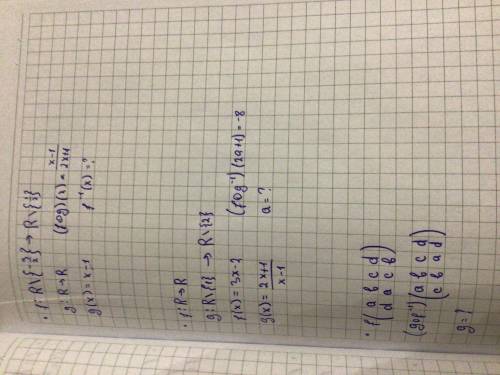 • f: R\{-½} → R\{½}
g: R→R (fog)(x) = x-1/2x+1
g(x) = x-1 f⁻¹(x) = ?
• f: R→R
g: R\{1} → R\{2}
f(x) = 3x-2 (fog⁻¹)(2a+1) = -8
g(x) = 2x+1/x-1 a = ?
• f(a b c d
d a c b)
(gof⁻¹)(a b c d
c b a d)
g = ?